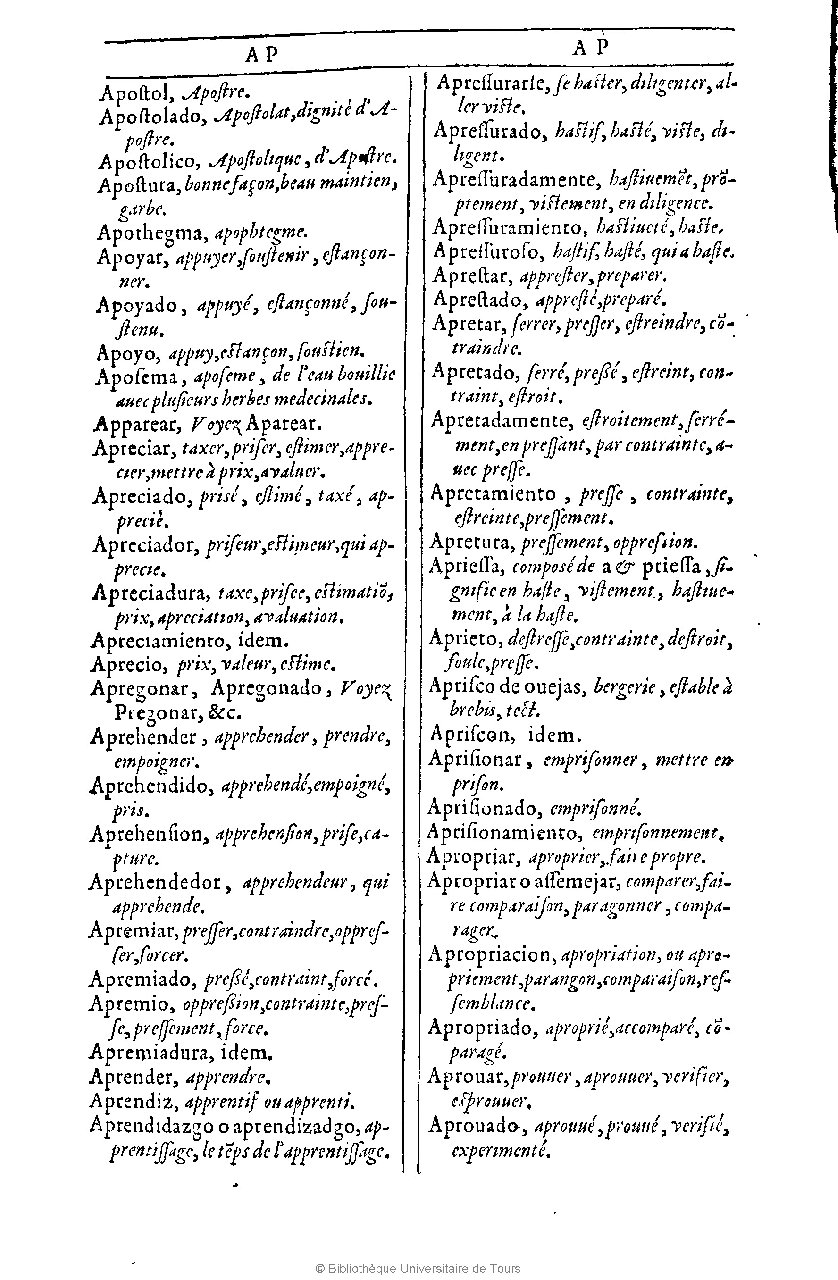 A P
Apoſtol, Apoſtre.
Apoſtolado, Apoſtolat, dignité d'A-
poſtre.
Apoſtolico, Apoſtolique, d'Apoſtre.
Apoſtura, bonne façon, beau maintien,
garbe.
Apothegma, apophtegme.
Apoyar, appuyer, ſouſtenir, eſtançon-
ner.
Apoyado, appuyé, eſtançonné, ſou-
ſtenu.
Apoyo, appuy, eſtançon, ſouſtien.
Apoſema, apoſeme, de l'eau bouillie
auec pluſieurs herbes medecinales.
Apparear, Voyez Aparear.
Apreciar, taxer, priſer, eſtimer, appre-
cier, mettre à prix, avaluer.
Apreciado, priſé, eſtimé, taxé, ap-
precié.
Apreciador, priſeur, eſtimeur, qui ap-
precie.
Apreciadura, taxe, priſee, eſtimatiõ,
prix, apreciation, avaluation.
Apreciamiento, idem.
Aprecio, prix, valeur, eſtime.
Apregonar, Apregonado, Voyez
Pregonar, &c.
Aprehender, apprehender, prendre,
empoigner.
Aprehendido, apprehendé, empoigné,
pris.
Aprehenſion, apprehenſion, priſe, ca-
pture.
Aprehendedor, apprehendeur, qui
apprehende.
Apremiar, preſſer, contraindre, oppreſ-
ſer, forcer.
Apremiado, preſſé, contraint, forcé.
Apremio, oppreſſion, contrainte, preſ-
ſe, preſſement, force.
Apremiadura, idem.
Aprender, apprendre.
Aprendiz, apprentif ou apprenti.
Aprendidazgo o aprendizadgo, ap-
prentiſſage, le tẽps de l'apprentiſſage.
A P
Apreſſurarſe, ſe haſter, diligenter, al-
ler viſte.
Apreſſurado, haſtif, haſté, viſte, di-
ligent.
Apreſſuradamente, haſtiuemẽt, prõ-
ptement, viſtement, en diligence.
Apreſſuramiento, haſtiueté, haſte.
Apreſſuroſo, haſtif, haſté, qui a haſte.
Apreſtar, appreſter, preparer.
Apreſtado, appreſté, preparé.
Apretar, ſerrer, preſſer, eſtreindre, cõ-
traindre.
Apretado, ſerré, preſſé, eſtreint, con-
traint, eſtroit.
Apretadamente, eſtroitement, ſerré-
ment, en preſſant, par contrainte, a-
uec preſſe.
Apretamiento, preſſe, contrainte,
eſtreinte, preſſement.
Apretura, preſſement, oppreſſion.
Aprieſſa, composé de a & prieſſa, ſi-
gnifie en haſte, viſtement, haſtiue-
ment, à la haſte.
Aprieto, deſtreſſe, contrainte, deſtroit,
foule, preſſe.
Apriſco de ouejas, bergerie, eſtable à
brebis, tect.
Apriſcon, idem.
Apriſionar, empriſonner, mettre en
priſon.
Apriſionado, empriſonné.
Apriſionamiento, empriſonnement.
Apropriar, aproprier, faire propre.
Apropriar o aſſemejar, comparer, fai-
re comparaiſon, paragonner, compa-
rager.
Apropriacion, apropriation, ou apro-
priement, parangon, comparaiſon, reſ-
ſemblance.
Apropriado, aproprié, accomparé, cõ-
paragé.
Aprouar, prouuer, aprouuer, verifier,
eſprouuer.
Aprouado, aprouué, prouué, verifié,
experimenté.
© Bibliothèque Universitaire de Tours